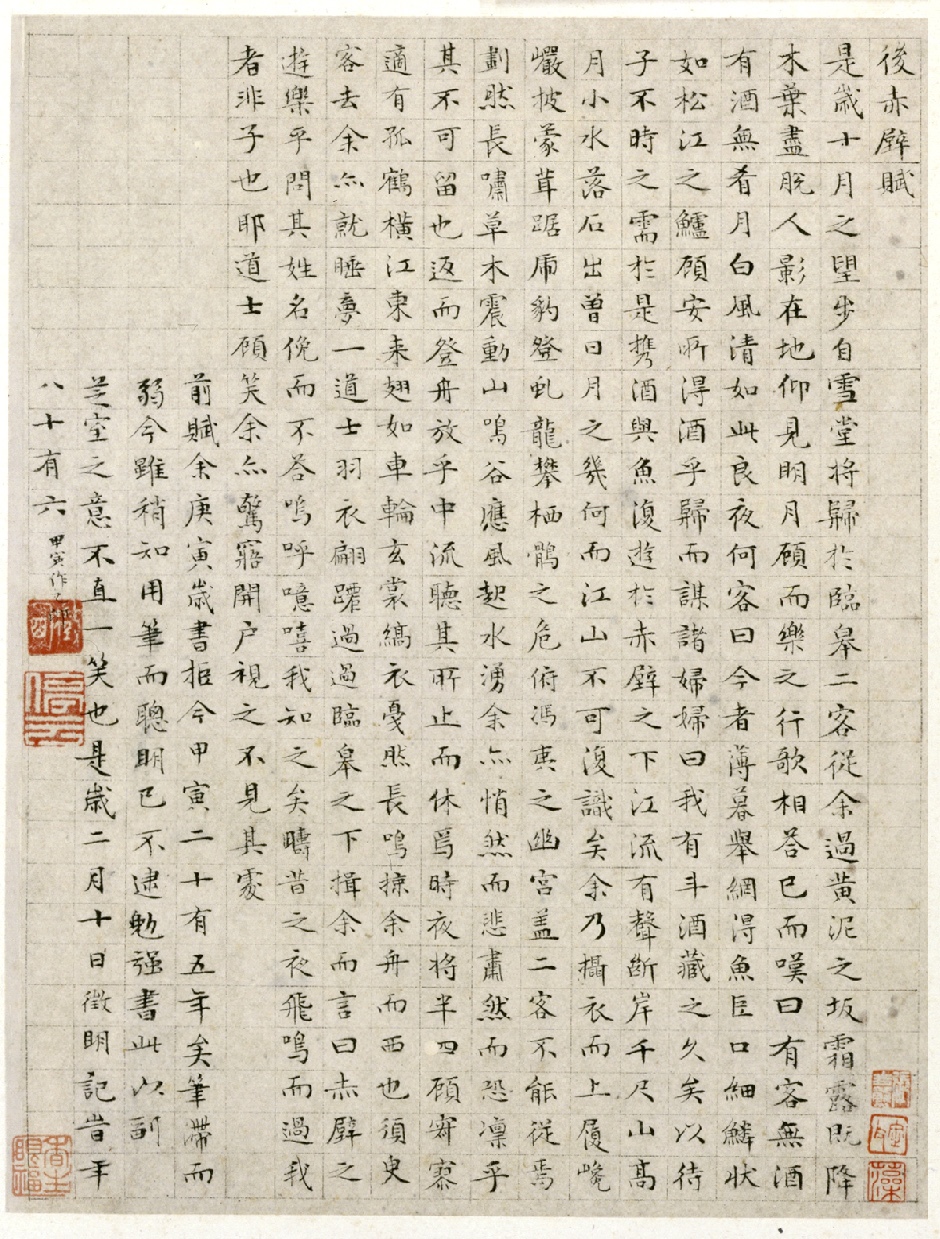 後赤壁賦
是歲十月之望步自雪堂將歸於臨皋二客從余過黃泥之坂霜露既降
木葉盡脫人影在地仰見明月顧而樂之行歌相答已而嘆曰有客無酒
有酒無肴月白風清如此良夜何客曰今者薄暮舉網得魚巨口細鱗狀
如松江之鱸顧安所得酒乎歸而謀諸婦婦曰我有斗酒藏之久矣以待
子不時之需於是攜酒與魚復遊於赤壁之下江流有聲斷岸千尺山高
月小水落石出曾日月之幾何而江山不可復識矣余乃攝衣而上履巉
巖披蒙茸踞虎豹登虬龍攀栖鶻之危俯馮夷之幽宮蓋二客不能從焉
劃然長嘯草木震動山鳴谷應風起水湧余亦悄然而悲肅然而恐凜乎
其不可留也返而登舟放乎中流聽其所止而休焉時夜將半四顧寂寥
適有孤鶴橫江東來翅如車輪玄裳縞衣戛然長鳴掠余舟而西也須臾
客去余亦就睡夢一道士羽衣翩躚過臨皋之下揖余而言曰赤壁之
遊樂乎問其姓名俛而不答嗚呼噫嘻我知之矣疇昔之夜飛鳴而過我
者非子也耶道士顧笑余亦驚寤開戶視之不見其處
前賦余庚寅歲書拒今甲寅二十有五年矣筆滯而
弱今雖稍知用筆而聰明已不逮勉强書此以副
芝室之意不直一笑也是歲二月十日徵明記昔年
八十有六